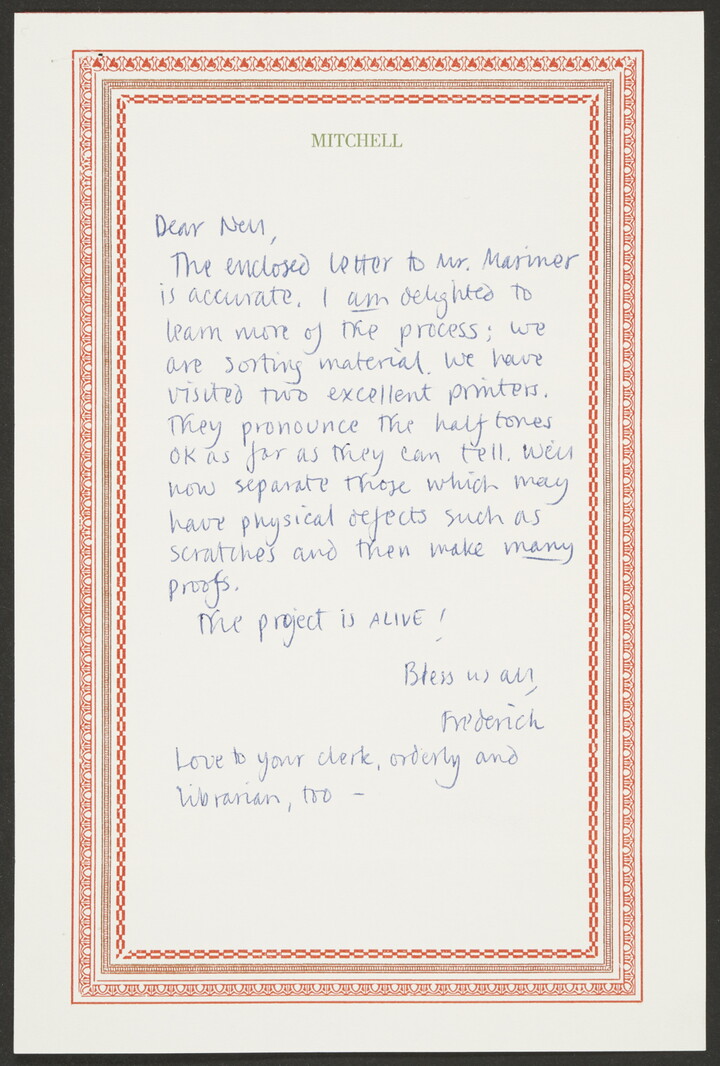 MITCHELL
Dear Nell,
The enclosed letter to Mr. Mariner
is accurate. I am delighted to
learn more of the process; we
are sorting material. We have
visited two excellent printers.
They pronounce the halftones
OK as far as they can tell. We'll
now separate those which may
have physical defects such as
scratches and then make many
proofs.
The project is ALIVE!
Bless us all,
Frederich
Love to your clerk, orderly and
librarian, too –